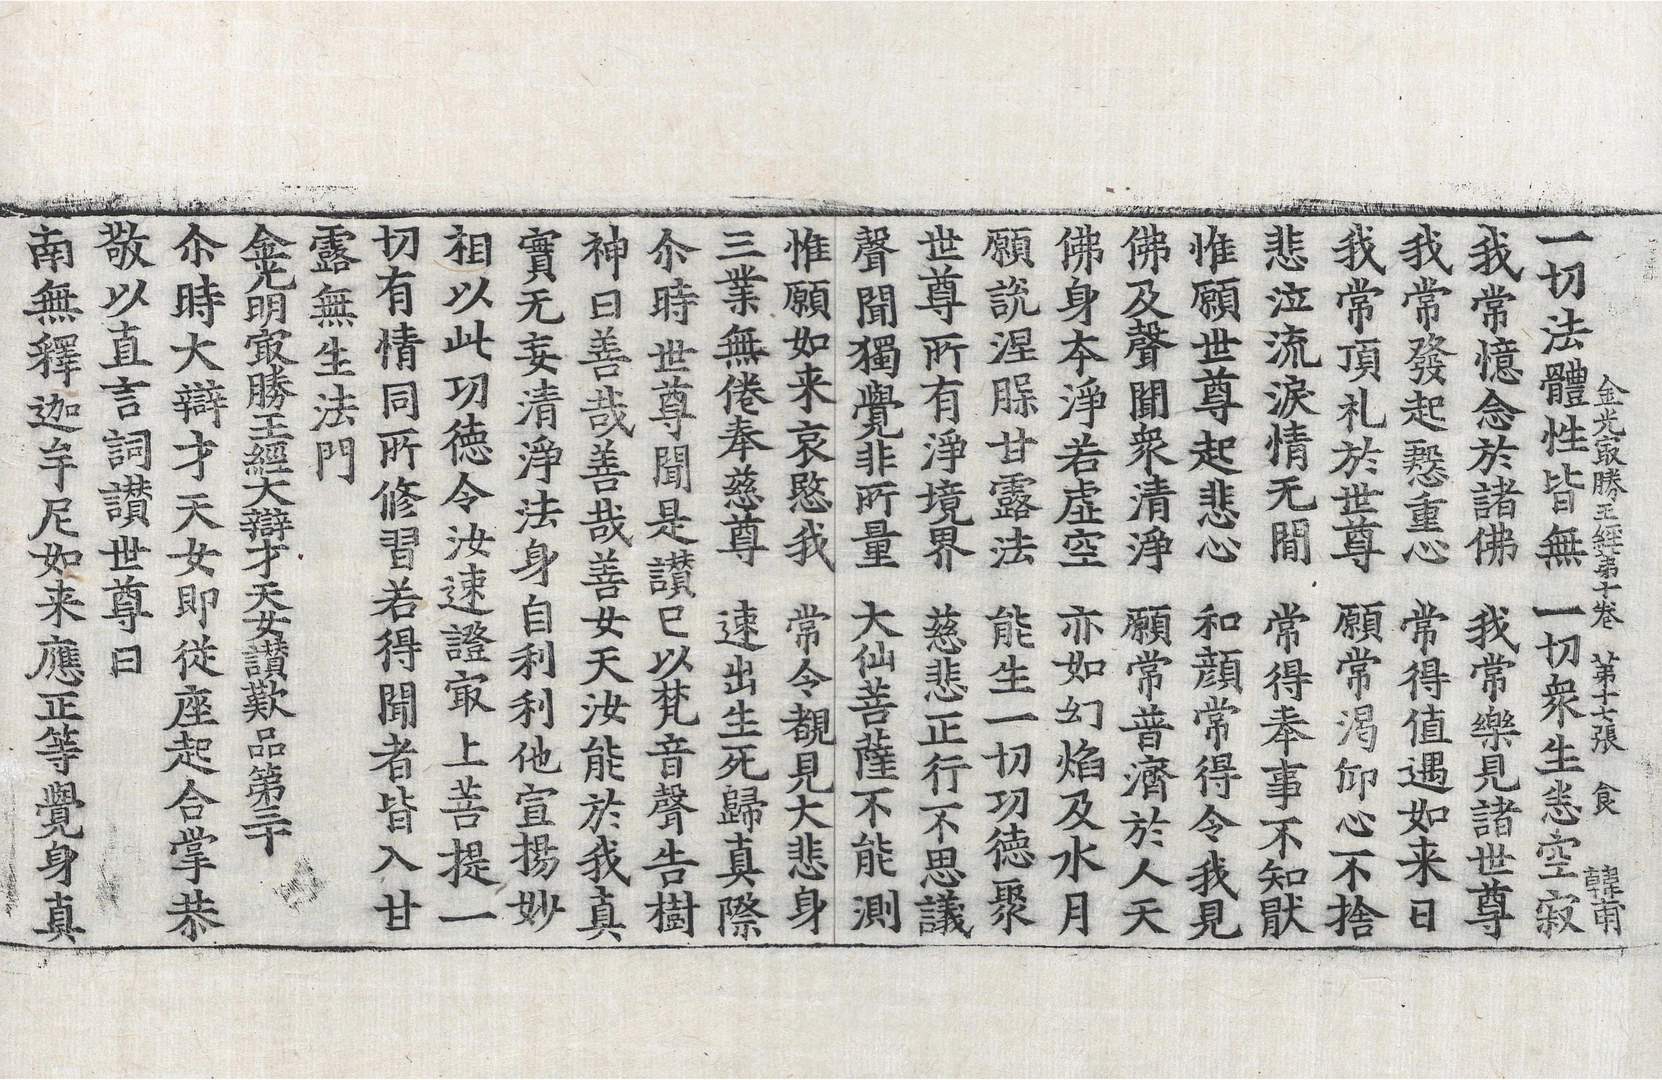 金光㝡勝王經第十卷　第十七張　食　韓甫
一切法體性皆無　一切衆生悉空寂
我常憶念於諸佛　我常樂見諸世尊
我常發起慇重心　常得值遇如来日
我常頂礼於世尊　願常渴仰心不捨
悲泣流淚情无間　常得奉事不知猒
惟願世尊起悲心　和顔常得令我見
佛及聲聞衆清淨　願常普濟於人天
佛身本淨若虛空　亦如幻焰及水月
願說涅槃甘露法　能生一切功德聚
世尊所有淨境界　慈悲正行不思議
聲聞獨覺非所量　大仙菩薩不能測
惟願如来哀愍我　常令覩見大悲身
三業無倦奉慈尊　速出生死歸真際
尒時世尊聞是讃已以梵音聲告樹
神曰善哉善哉善女天汝能於我真
實无妄清淨法身自利利他宣揚妙
相以此功德令汝速證㝡上菩提一
切有情同所修習若得聞者皆入甘
露無生法門
金光明㝡勝王經大辯才天女讃歎品第三十
尒時大辯才天女即從座起合掌恭
敬以直言詞讃世尊曰
南無釋迦牟尼如来應正等覺身真